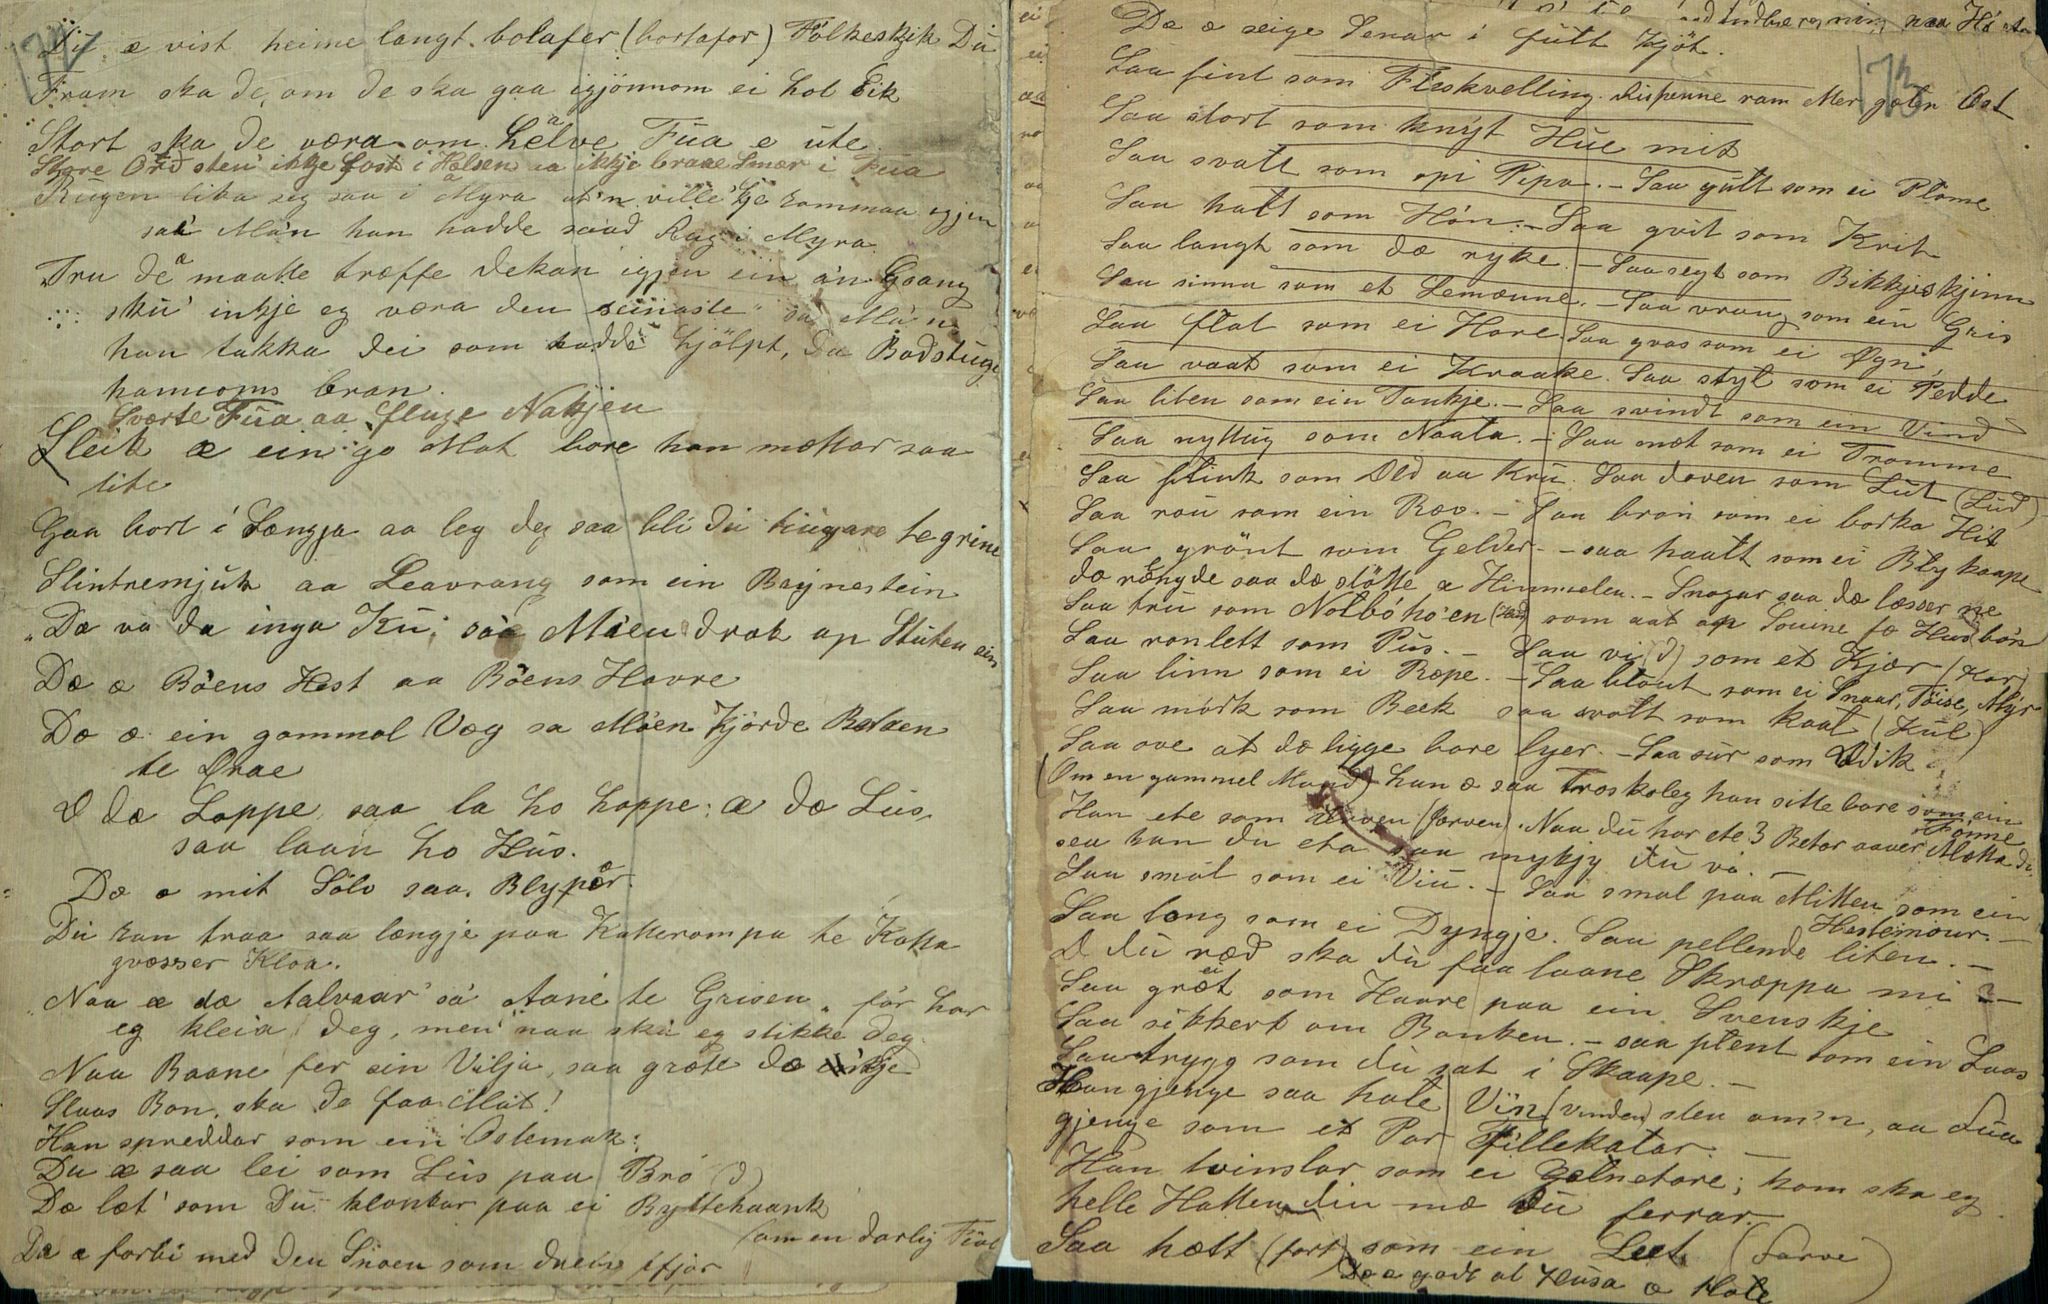 172
Du æ vist heime langt bolafer (bortafor) Fólkeskjik Du
Fram ska de, om de ska gaa igjönnom ei hol Eik
Stort ska de væra om hälve Fua e ute.
Store Ord sleu ikkje Lost i Halsen aa ikkje braae Smær i Fua
Rugen lika seg saa i Myra at'n ville kje komma igjen
saa Má'n han hadde saad Rug i Myra
"Tru dæ maatte træffe dekan igjen ein a'n Gaang
sku' inkje eg væra den seinaste" sa Má'n
han takka dei som hadde hjölpt, da Badstuge
hans bran.
Sværte Fua aa fluge Nakjen
Sleik æ ein go Mat bare han mættar saa
lite
Gaa bort i Længja aa leg deg saa bli du hugare te grine
Slintremjuk aa Leavrang som ein Brynestein
"Dæ va da inga Ku" saa Má'en drog op Stuten sin
Dæ æ Böens Hest aa Böens Havre
Dæ æ ein gammal Veg sa Máen kjörde
te Aae
Æ dæ Loppe, saa la ho hoppe: æ dæ Lus,
saa laan ho Hus.
Dæ æ mit Sölv saa. Blypær.
Du kan traa saa længje paa Katterompa te Katta
gvæsser Kloa.
"Naa æ dæ Aalvaar" sá Aane te Grisen "för har
eg kleia deg, men naa ska eg stikke deg.
Naa Baane fer sin Vilja, saa græte dæ inkje
Slaas Ban, ska de faa Mat!
Han spreddar som ein Ostemak:
Du æ saa lei som Lus paa Bró (d)
Dæ læt' som Du klonkar paa ei Byttehaank
(om en darlig Fiol
Dæ æ forbi med den Snoen som dreiv ifjor
173
Dæ æ seige Senar i fult Kjöt.
Saa fint som Fluskvelling. rispenne ram Mer gæten Ost
Saa stort som knýt Hue mit
Saa svatt som opi Pipa. – Saa gutt som ei Plome
Saa hatt som Hón. – Saa gvit som Krit
Saa langt som dæ ryke. – Saa seigt som Bikkjeskjinn
Saa sinna som et Lemænne. – Saa vrang som ein Gris
Saa flat som ei Hare. Saa gvas som ei Øgn,
Saa vaat som ei Kraake. Saa styl som ei Pedde
Saa liten som ein Tankje. – Saa svindt som ein Vind
Saa nyttug som Naata. – Saa mæt som ei Tromme
Saa flink som Eld aa Kru. Saa doven som Lut (Lud)
Saa rou som ein Ræv. – Saa bran som ei borka Hit
Saa grönt som Gelder. – saa haalt som ei Blykaape
dæ rængde saa dæ stötte æ Himmelen. – Snogar saa dæ læsser ne
Saa tru som Notbóhó'en som aat op Souine fæ Husbón
Saa ronlett som Pus. – Saa vi(d) som et Kjær (Kar)
Saa linn som ei Ræpe. – Saa blout som ei Snaar, Töise, Myr
Saa mörk som Beek saa svatt som kaal (Kul)
Saa ove at dæ ligge bare lyer. – Saa sur som Edik
(Om en gammel Mand) han æ saa troskoleg han sitte bare som ein
Fönne
Han ete som Jærven (Jærven). Naa du har ete 3 Betar aaver Mætta di,
sea kan du eta saa mykjy du vi. –
Saa smál som ei Viu. – Saa smal paa Mitten som ein
Hestemour. –
Saa long som ei Dyngje. Saa pellende liten. –
Æ du ræd ska du faa laane Skræppa mi –
Saa grët som Haare paa ein Svenskje
Saa sikkert om Banken. – saa plent som ein Laas
Saa trygg som du sat i Skaape. –
Han gjenge saa hate Vin (vinden) sleu om'n, aa Lua
gjenge som et Par Fillekatar. –
Han tvinslar som ei Gætnetare; kom ska eg
helle Hatten din mæ du ferrar. –
Saa hætt (fort) som ein Leet (Farve)
Dæ æ godt at Husa æ Hole